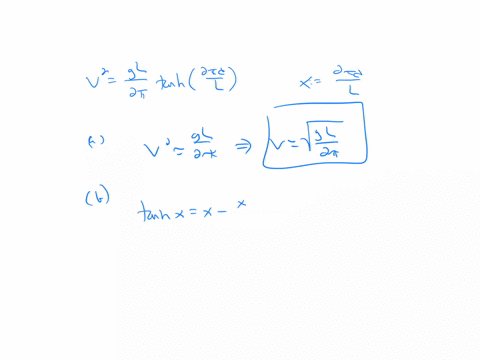 v² = gL/2π tanh(2πd/L) x = 2πd/L
(a) v² ≈ gL/2π ⇒ v ≈ √(gL/2π)
(b)
tanh x = x - x